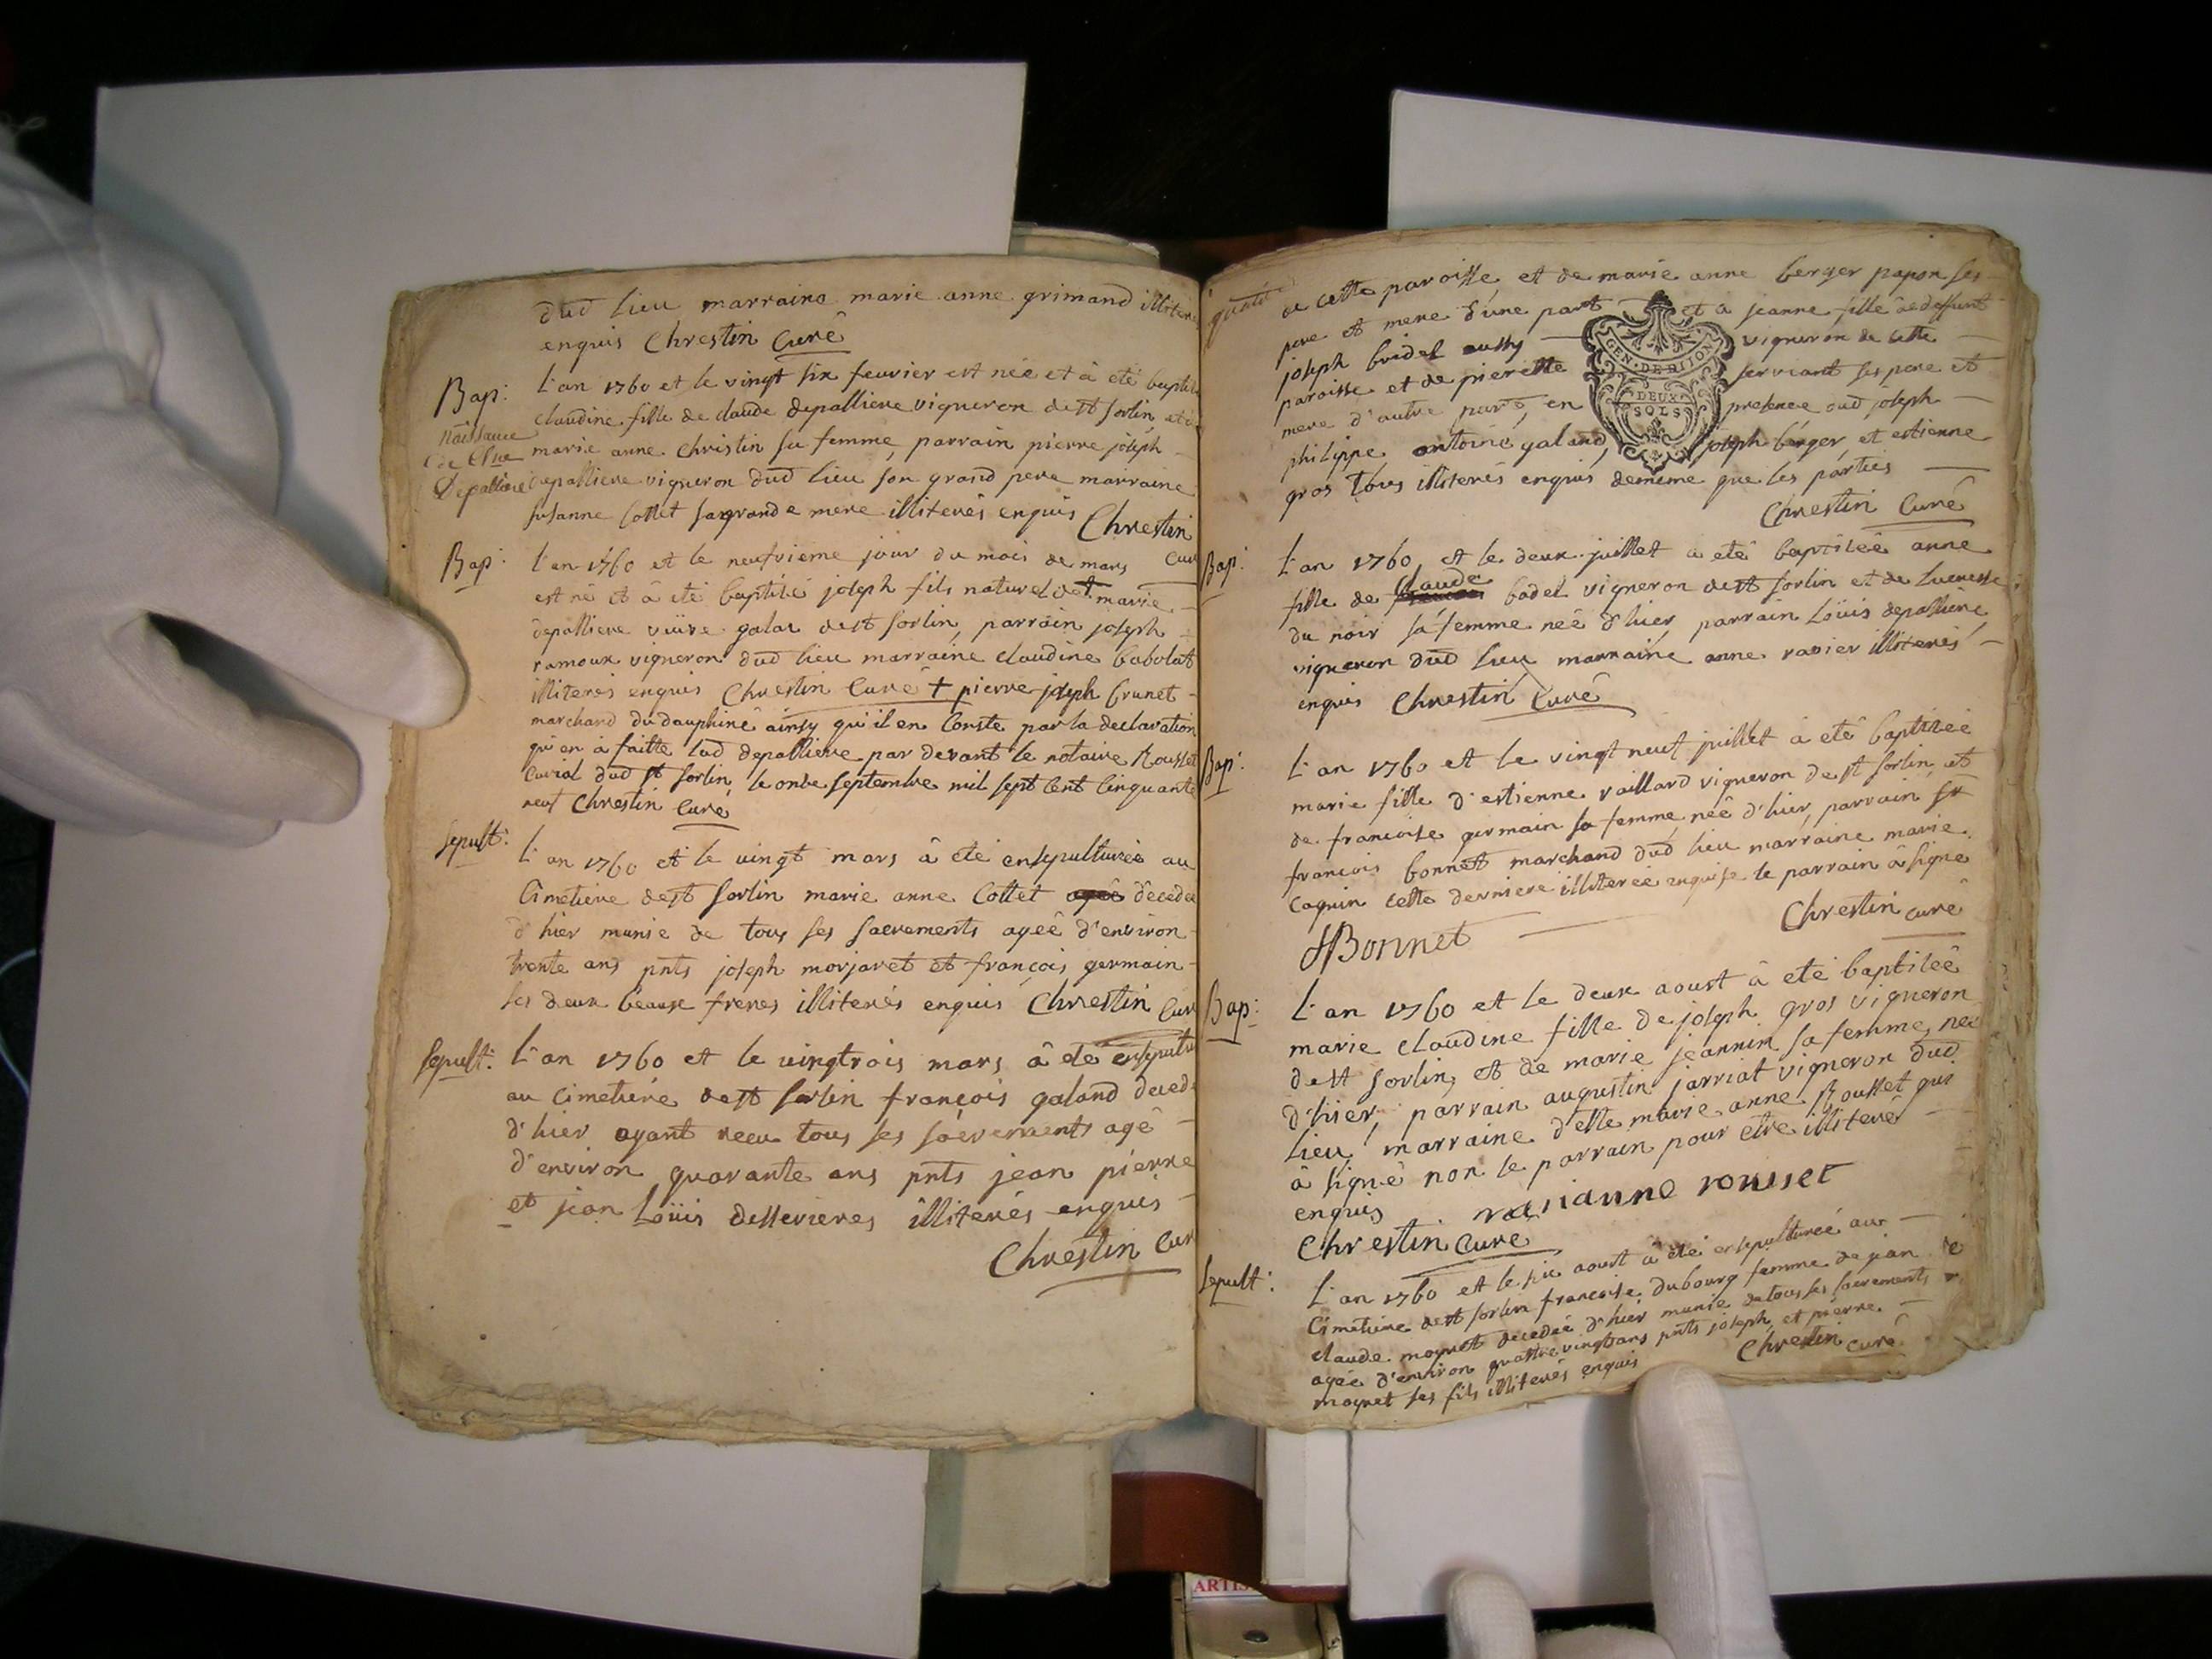 dud lieu marraine marie anne grimand illiterés
enquis Chrestin Curé
Bap: L'an 1760 et le vingt six feuvrier est née et à eté baptisée
claudine fille de claude depalliere vigneron de st sorlin et de
naissance de Clne Depalliere
marie anne Christin sa femme, parrain pierre joseph
depalliere vigneron dud lieu son grand pere marraine
susanne Collet sa grande mere illiterés enquis Chrestin
Curé
Bap: L'an 1760 et le neufvieme jour du mois de mars
est né et à eté baptisé joseph fils naturel de + marie
depalliere galar de st sorlin, parrain joseph
ramoux vigneron dud lieu marraine claudine babolat
illiterés enquis Chrestin Curé + pierre joseph brunet
marchand du dauphiné ainsy qu'il en Conste par la declaration
qu'en à faitte lad depalliere par devant le notaire Rousset
Curial dud st sorlin, le onze septembre mil sept Cent Cinquante
neuf Chrestin Curé
Sepult: L'an 1760 et le vingt mars à eté ensepulturée au
Cimetiere de st sorlin marie anne Collet agée decedée
d'hier munie de tous ses sacrements agée d'environ
trente ans pnts joseph morjaret et françois germain
ses deux beaux freres illiterés enquis Chrestin Curé
Sepult: L'an 1760 et le vingtrois mars à eté ensepulturé
au Cimetiére de st sorlin françois galand decedé
d'hier ayant recu tous ses sacrements agé
d'environ quarante ans pnts jean pierre
et jean Loüis desserieres illiterés enquis
Chrestin Curé
de cette paroisse et de marie anne berger papon ses
pere et mere d'une part et à jeanne fille de deffunt
joseph bridel aussy vigneron de cette
paroisse et de pierette serviant ses pere et
mere d'autre part, en presence dud joseph
philippe antoine galand, joseph berger et estienne
gros tous illiterés enquis demême que les parties
GEN. DE DIJON
DEUX
SOLS
Chrestin Curé
Bap: L'an 1760, et le deux juillet à eté baptisée anne
fille de claude badel vigneron de st sorlin et de lucresse
du noir sa femme neé d'hier, parrain Loüis depalliere
vigneron dud lieu marraine anne ravier illiterés
enquis Chrestin Curé
Bap: L'an 1760 et le vingt neuf juillet à eté baptisée
marie fille d'estienne vaillard vigneron de st sorlin, et
de francoise germain sa femme neé d'hier, parrain sr
françois bonnet marchand dud lieu marraine marie
Coquin cette derniere illiterée enquise le parrain à signé
Chrestin curé
Bonnet
Bap: L'an 1760 et le deux aoust à eté baptisée
marie claudine fille de joseph gros vigneron
de st sorlin, et de marie jeannin sa femme, neé
d'hier, parrain augustin jarriat vigneron dud
lieu, marraine delle marie anne Rousset qui
à signé non le parrain pour etre illiteré
enquis marianne rousset
Chrestin Curé
Sepult: L'an 1760 et le six aoust à eté ensepulturée au
Cimetiere de st sorlin francoise dubourg femme de jean
claude moquet decedée d'hier munie de tous ses sacrements
agée d'environ quattre vingt ans pnts joseph et pierre
moquet ses fils illiterés enquis Chrestin curé